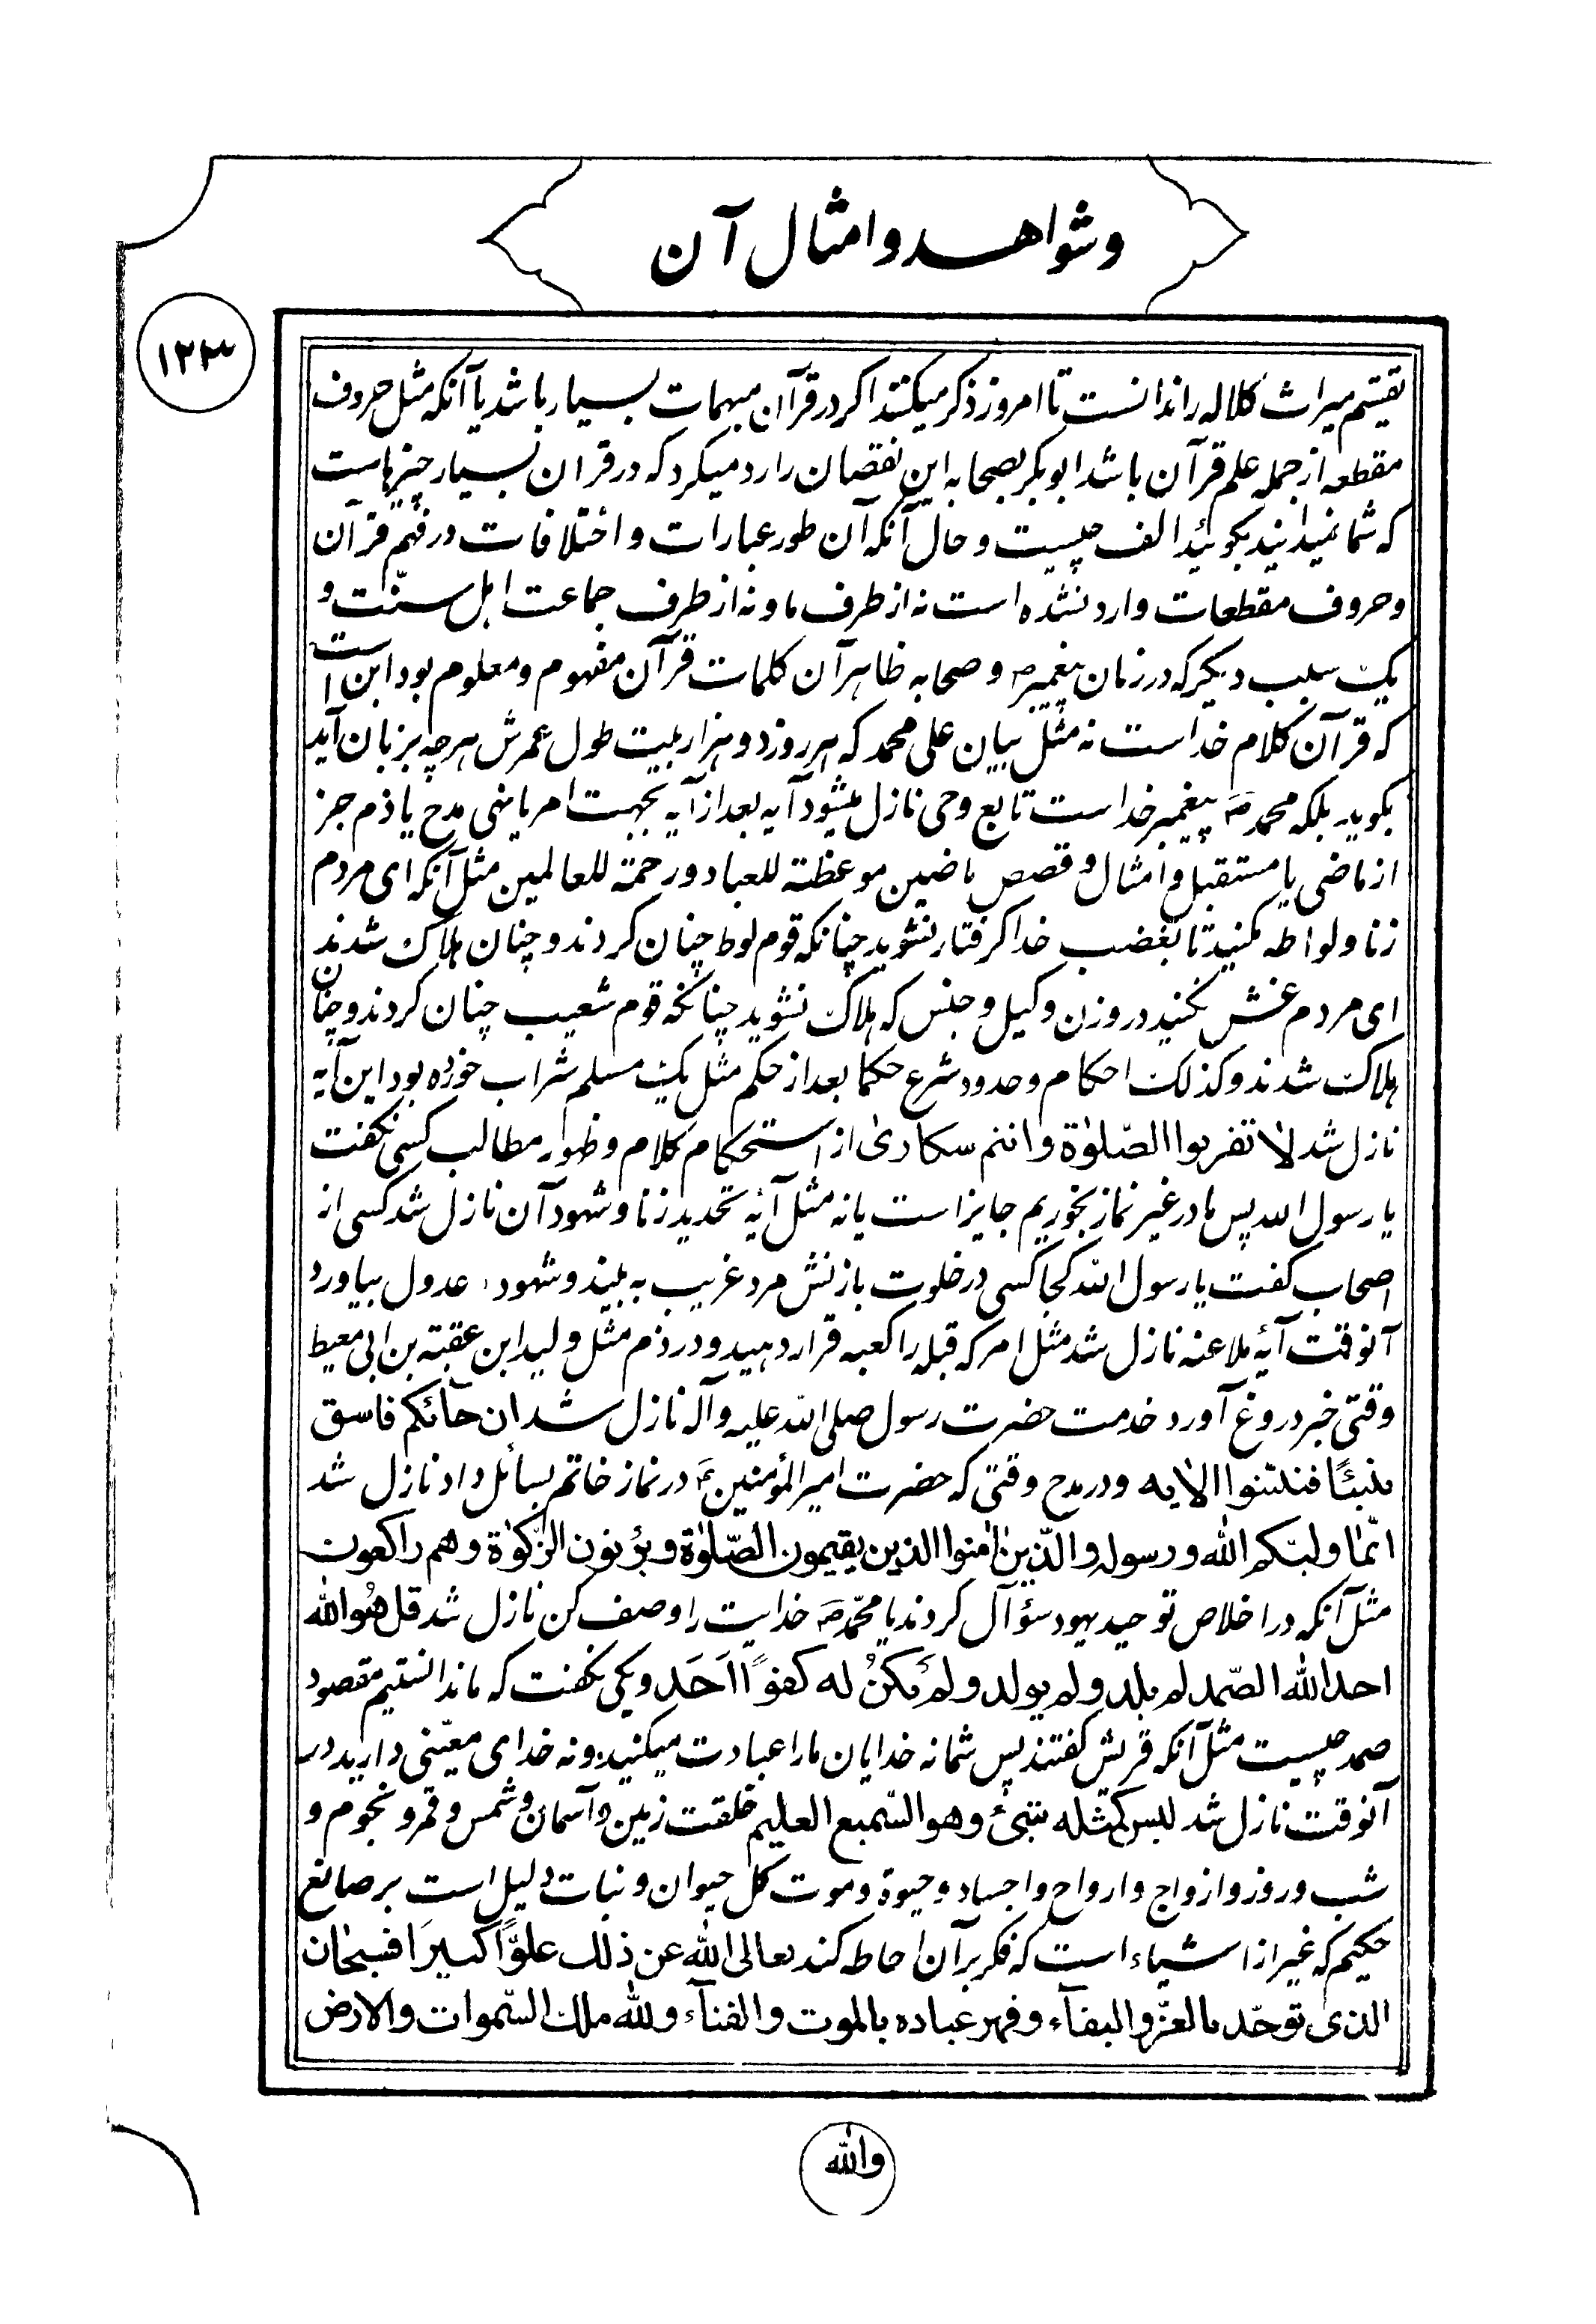 وشواهد وامثال آن
۱۲۳
تقیتم میراث کلاله را ندانست تا امروز ذکر میکنند اکر در قرآن مبهمات بسیار باشد یا آنکه مثل حروف
مقطعه از جمله علم قرآن باشد ابو بکر بصحابه این نقصان را رد میکرد که در قران بسیار چیزهاست
که شما نمیدانید بکوئید الف چیست و حال آنکه آن طور عبارات و اختلافات در فهم قرآن
و حروف مقطعات وارد نشده است نه از طرف ما و نه از طرف جماعت اهل سنّت و
یک سبب دیکر که در زمان پیغمبر ص و صحابه ظاهر آن کلمات قرآن مفهوم و معلوم بود این است
که قرآن کلام خداست نه مثل بیان علی محمد که هر روز دو هزار بیت طول عمرش هر چه بزبان آید
بکوید بلکه محمد ص پیغمبر خداست تابع وحی نازل میشود آیه بعد از آیه بجهت امر یا نهی مدح یا ذم جز
از ماضی یا مستقبل و امثال و قصص ماضین موعظته للعباد و رحمته للعالمین مثل آنکه ای مردم
زنا و لواطه مکنید تا بغضب خدا کرفتار نشوید چنانکه قوم لوط چنان کردند و چنان هلاک شدند
ای مردم غش نکنید در وزن و کیل و جنس که هلاک نشوید چنانکه قوم شعیب چنان کردند و چنان
هلاک شدند و کذلک احکام و حدود شرع حکما بعد از حکم مثل یک مسلم شراب خورده بود این آیه
نازل شد لا تقربوا الصّلوٰة وانتم سکاریٰ از استحکام کلام و ظهور مطالب کسی نکفت
یا رسول الله پس ما در غیر نماز بخوریم جایز است یا نه مثل آیۀ تحدید زنا و شهود آن نازل شد کسی از
اصحاب کفت یا رسول الله کجا کسی در خلوت با زنش مرد غریب به بیند و شهود عدول بیاورد
آنوقت آیۀ ملاعنه نازل شد مثل امر که قبله را کعبه قرار دهید و در ذم مثل ولید ابن عقبة بن ابی معیط
وقتی خبر دروغ آورد خدمت حضرت رسول صلی الله علیه وآله نازل شد ان جآئکم فاسق
بنبئًا فتبیّنوا الایه و در مدح وقتی که حضرت امیر المؤمنین ع در نماز خاتم بسائل داد نازل شد
انّما ولیّکم الله ورسوله والّذین اٰمنوا الذین یقیمون الصّلوٰة ویؤتون الزّکوٰة وهم راکعون
مثل آنکه در اخلاص توحید یهود سؤال کردند یا محمّد ص خدایت را وصف کن نازل شد قل هُو الله
احد الله الصّمد لم یلد ولم یولد ولم یَکنُ له کفوًا اَحَد و یکی نکفت که ما ندانستیم مقصود
صمد چیست مثل آنکه قریش کفتند پس شما نه خدایان ما را عبادت میکنید و نه خدای معیّنی دارید در
آنوقت نازل شد لیس کمثله شیئ وهو السّمیع العلیم خلقت زمین و آسمان و شمس و قمر و نجوم و
شب و روز و ازواج و ارواح و اجساد و حیوة و موت کل حیوان و نبات دلیل است بر صانع
حکیم که غیر از اشیاء است که فکر بر آن احاطه کند تعالی الله عن ذلک علوًّا کبیرًا فسبحٰان
الذی توحّد بالعزّ والبقآء وقهر عباده بالموت والفنآء ولله ملک السّموات والارض
والله